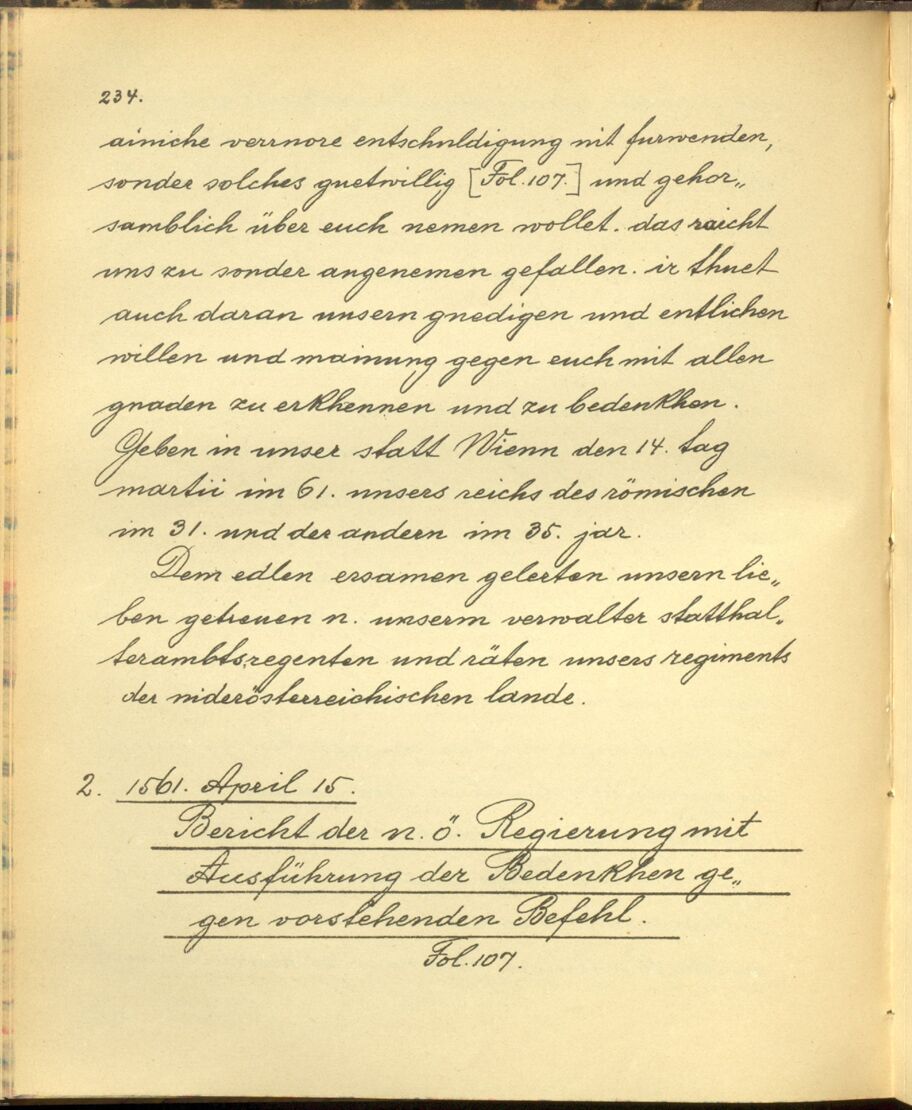 234.
ainiche verrnore entschuldigung nit furwenden,
sonder solches guetwillig [Fol. 107.] und gehor„
samblich über euch nemen wollet. das raicht
uns zu sonder angenemen gefallen. ir thuet
auch daran unsern gnedigen und entlichen
willen und mainung gegen euch mit allen
gnaden zu erkhennen und zu bedenkhen.
Geben in unser statt Wienn den 14. tag
martii im 61. unsers reichs des römischen
im 31. und der andern im 35. jar.
Dem edlen ersamen gelerten unsern lie„
ben getreuen n. unserm verwalter statthal„
terambts, regenten und räten unsers regiments
der niderösterreichischen lande.
2. 1561. April 15.
Bericht der n. ö. Regierung mit
Ausführung der Bedenkhen ge„
gen vorstehenden Befehl.
Fol. 107.